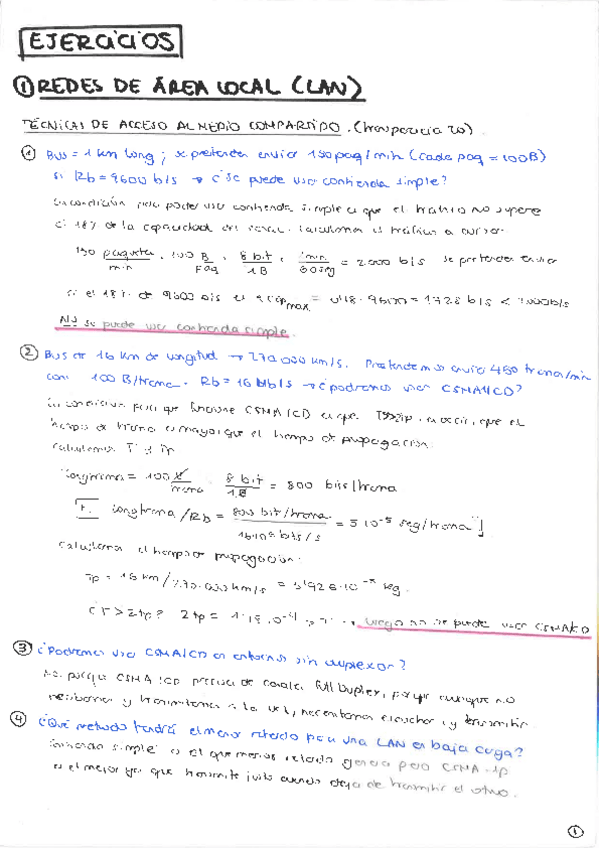 EJERCICIOS
① REDES DE ÁREA LOCAL (LAN)
TÉCNICAS DE ACCESO AL MEDIO COMPARTIDO. (transparencia 20)
① Bus = 1 km long; se pretenden enviar 150 paq/min (cada paq = 100B)
si Rb = 9600 b/s → ¿se puede usar contienda simple?
La condición para poder usar contienda simple es que el tráfico no supere
el 18% de la capacidad del canal. Calculamos el tráfico a cursar:
150 paquetes/min · 100 B/paq · 8 bit/1B · 1min/60seg = 2000 b/s se pretenden enviar
si el 18% de 9600 b/s es = 0'18 · 9600 = 1728 b/s < 2000b/s
No se puede usar contienda simple.
② Bus de 16 km de longitud → 270.000 km/s. Pretendemos enviar 480 trama/min
con 100 B/trama. Rb = 16 Mb/s → ¿podremos usar CSMA/CD?
La condición para que funcione CSMA/CD es que T>2tp, es decir, que el
tiempo de trama es mayor que el tiempo de propagación.
calculamos T y Tp
Long trama = 100 B/trama · 8 bit/1B = 800 bits/trama
T = long trama/Rb = 800 bit/trama / = 5·10⁻⁵ seg/trama
calculamos el tiempo propagación:
Tp = 16 km/270.000 km/s = 5'926·10⁻⁵ seg.
¿T>2tp? 2tp = 1'18·10⁻⁴ luego no se puede usar CSMA/CD
③ ¿Podremos usar CSMA/CD en entornos sin duplexor?
No, porque CSMA/CD precisa de canales full duplex, porque aunque no
recibamos y transmitamos a la vez, necesitamos escuchar y transmitir.
④ ¿Qué método tendrá el menor retardo para una LAN en baja carga?
Contienda simple es el que menos retardo genera pero CSMA-1p
es el mejor ya que transmite justo cuando deja de transmitir el otro.
①